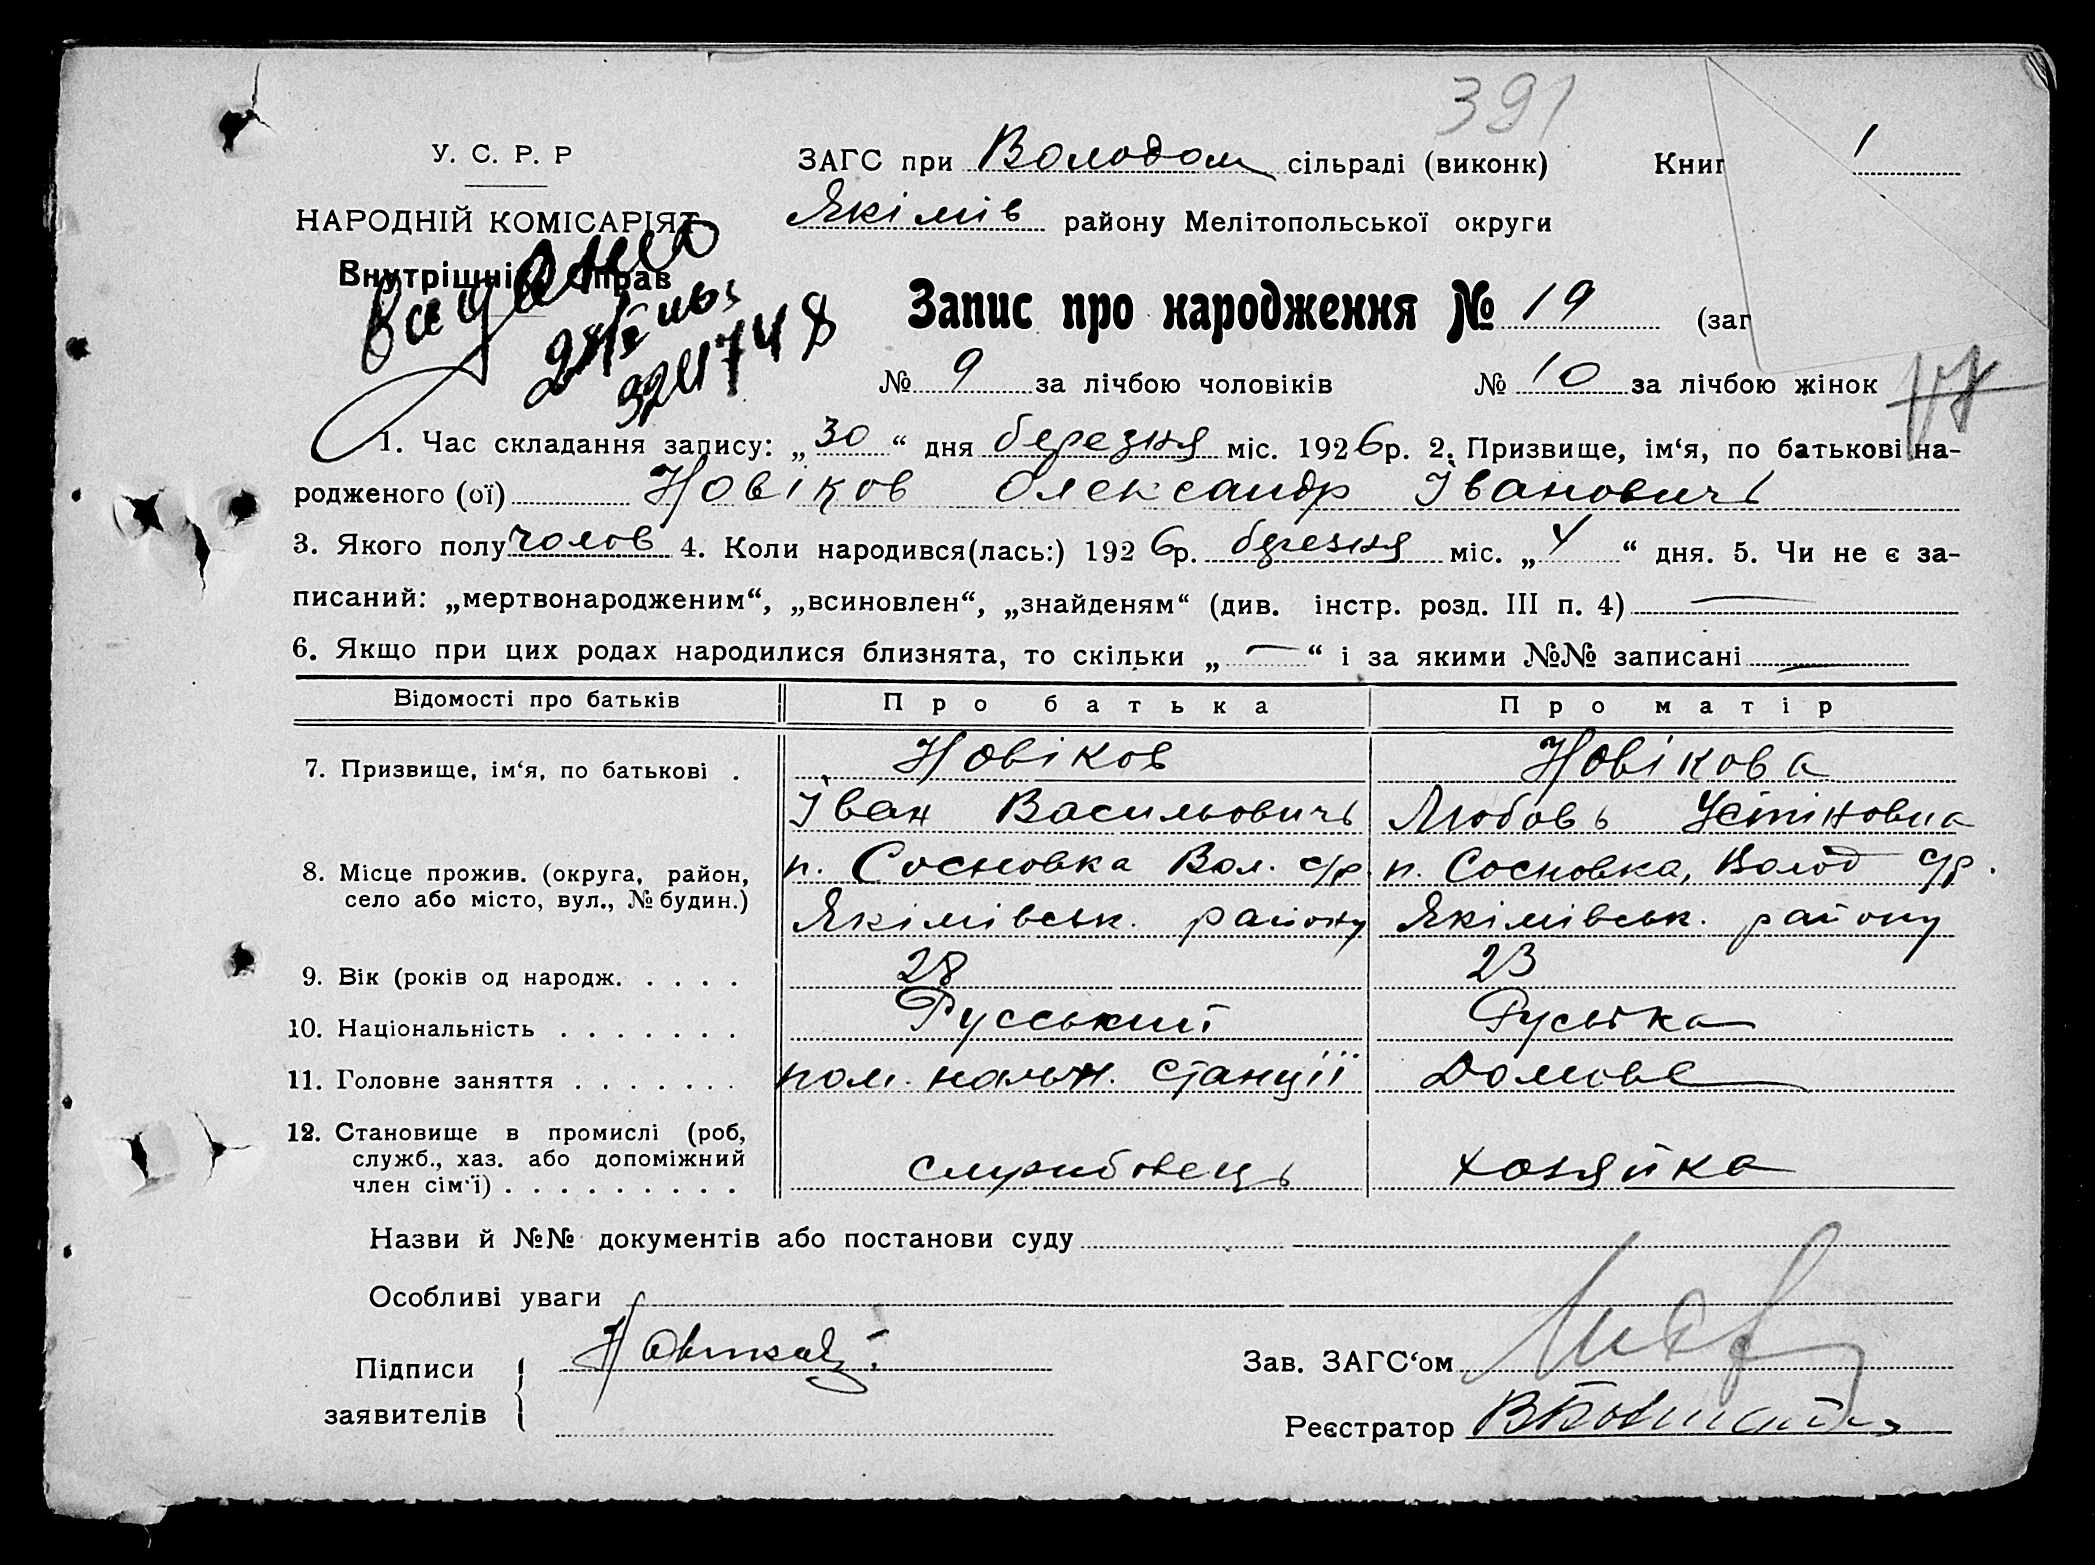 391
У. С. Р. Р
ЗАГС при Володом сільраді (виконк) Книг 1
НАРОДНІЙ КОМІСАРІЯТ
Якімів району Мелітопольської округи
Внутрішніх Справ
видано
Запис про народження № 19 (заг
№ 9 за лічбою чоловіків № 10 за лічбою жінок
1. Час складання запису: „30“ дня березня міс. 1926р. 2. Призвище, ім‘я, по батькові на-
родженого (ої) Новіков Олександр Івановичь
3. Якого полу чолов 4. Коли народився(лась:) 1926р. березня міс. „4“ дня. 5. Чи не є за-
писаний: „мертвонародженим“, „всиновлен“, „знайденям“ (див. інстр. розд. III п. 4) —
6. Якщо при цих родах народилися близнята, то скільки „—“ і за якими №№ записані —
Відомості про батьків Про батька Про матір
7. Призвище, ім‘я, по батькові . Новіков Новікова
Іван Васильовичь Любовь Устіновна
8. Місце прожив. (округа, район, п. Сосновка Вол. с/р. п. Сосновка, Волод с/р.
село або місто, вул., № будин.) Якімівськ. району Якімівськ. району
9. Вік (років од народж. . . . . 28 23
10. Національність . . . . . . . Русський Руська
11. Головне заняття . . . . . . . пом. начьн. станції Домове
12. Становище в промислі (роб, служб., хаз. або допоміжний член сім‘ї) . . . . . . . . . службовець хозяйка
Назви й №№ документів або постанови суду
Особливі уваги
Підписи
заявителів
Зав. ЗАГС‘ом
Реєстратор